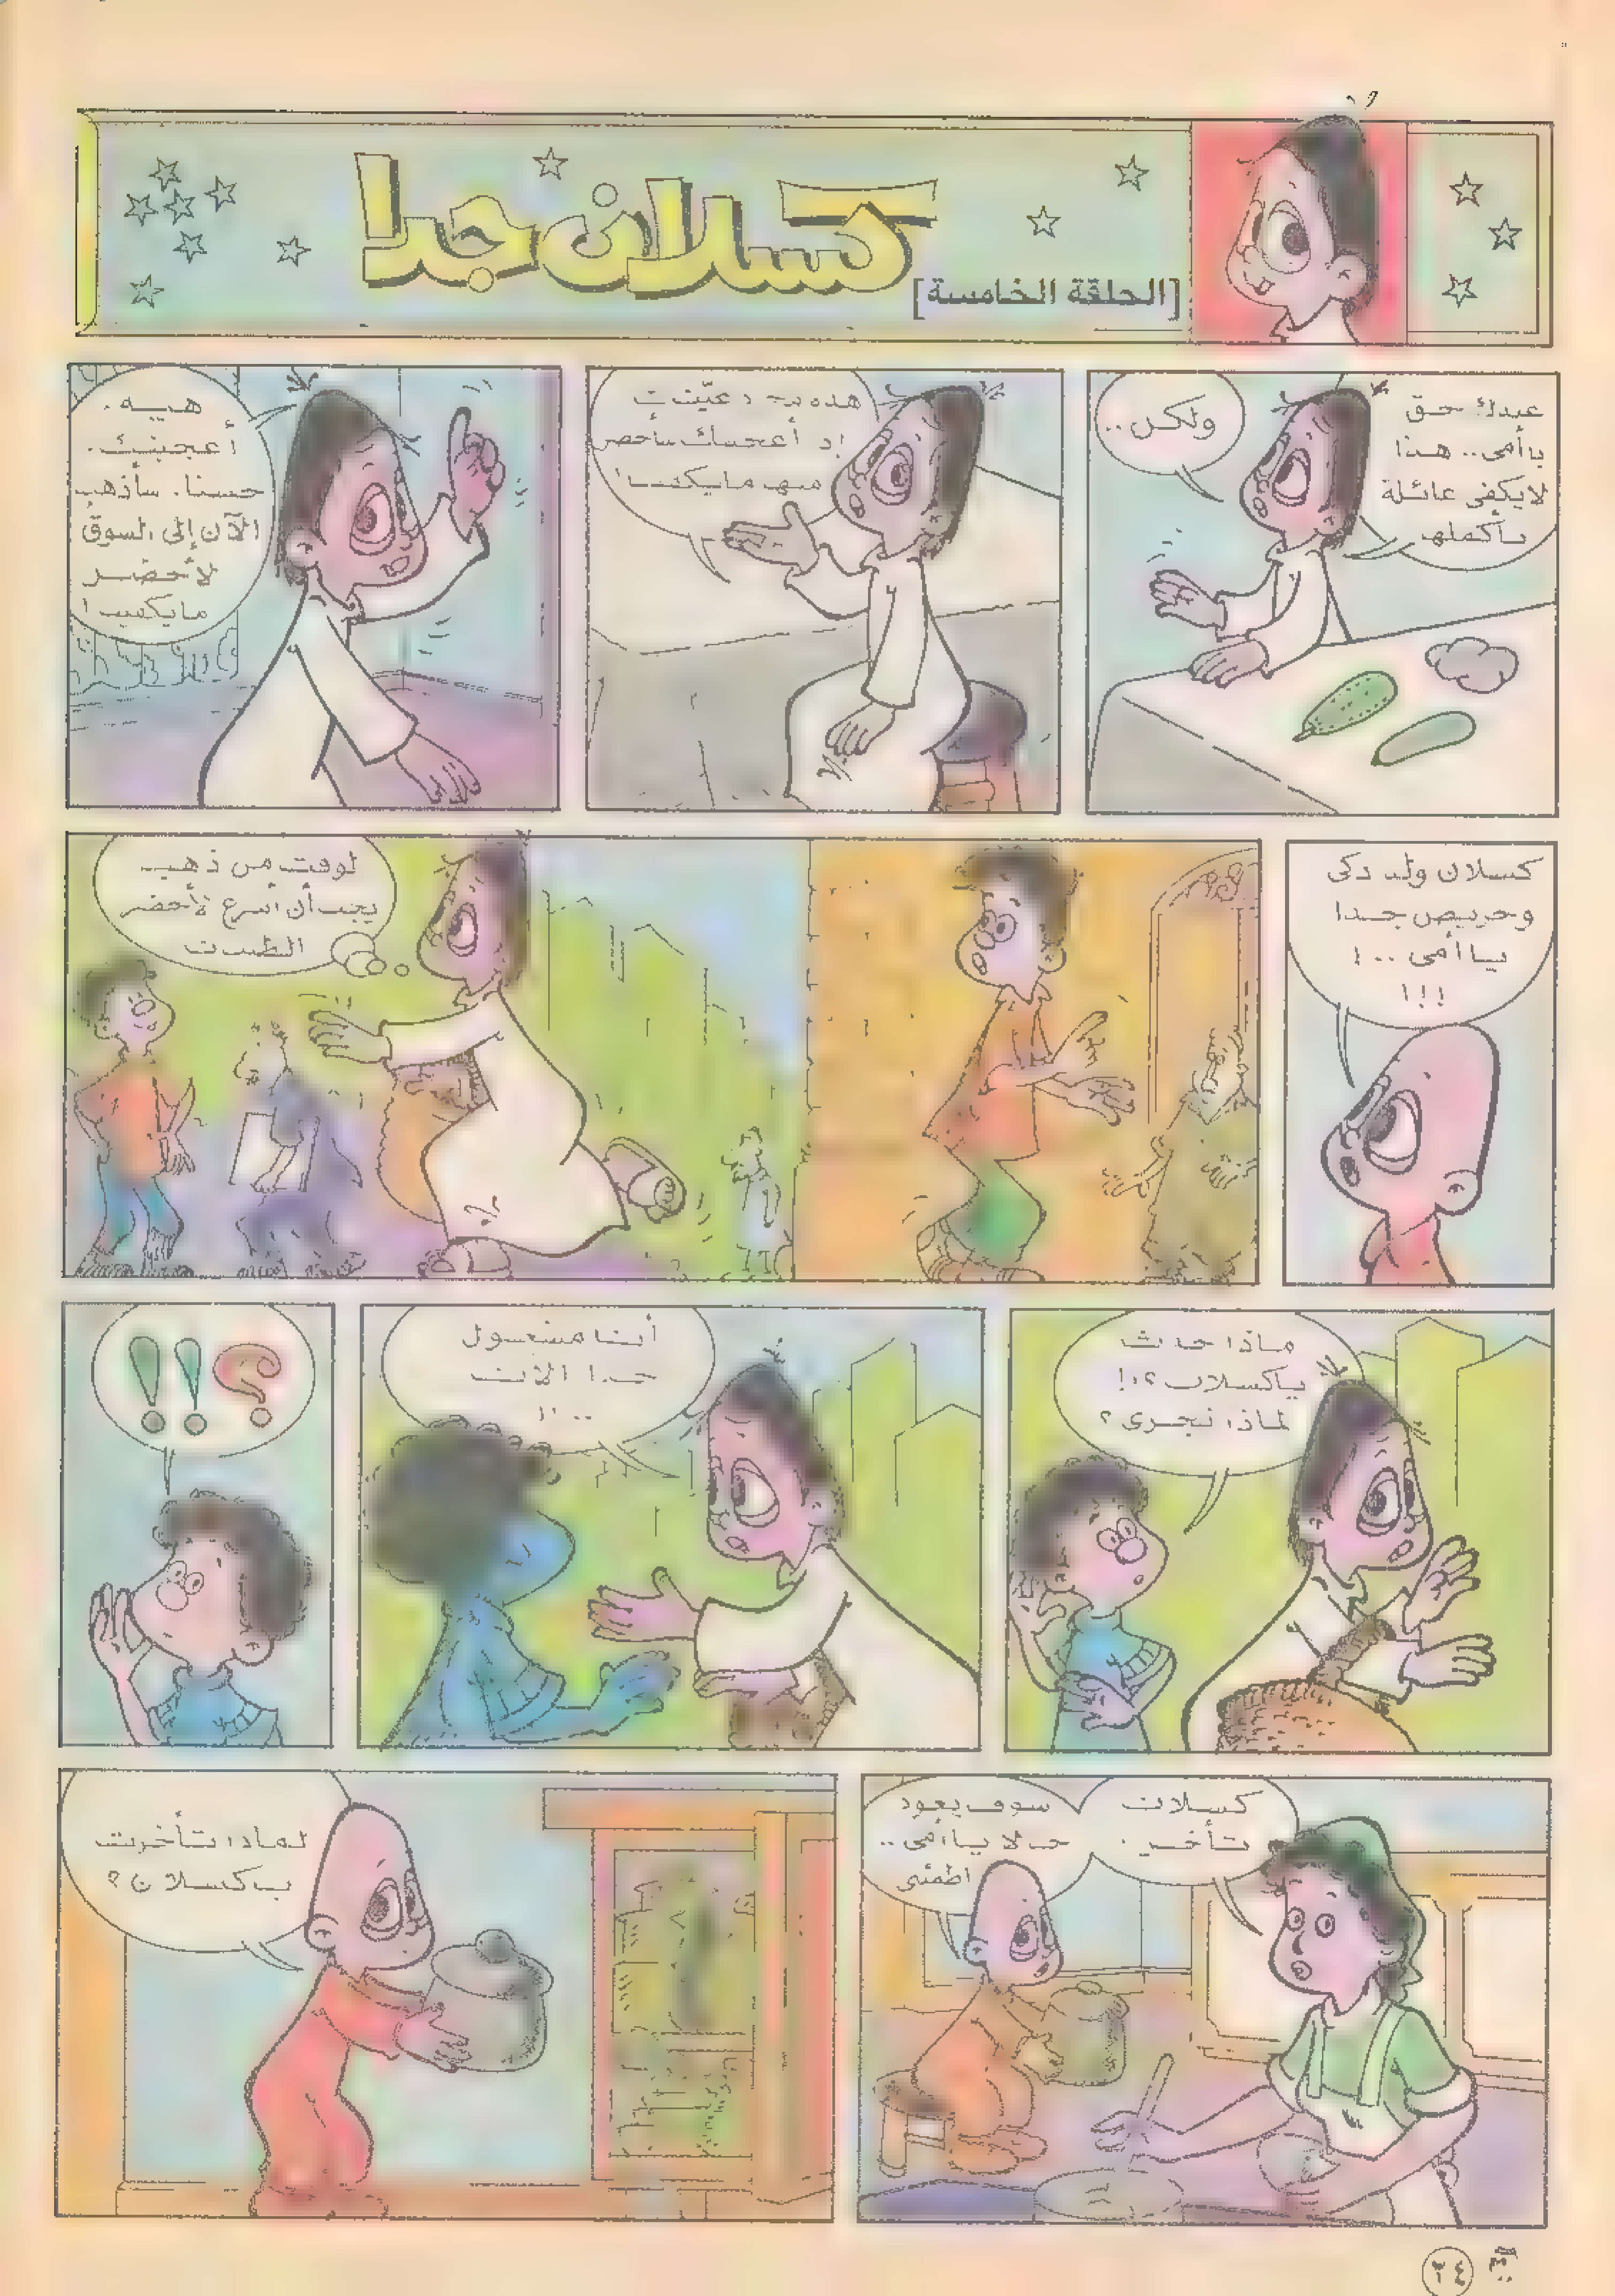 كسلان جدا
[الحلقة الخامسة]
عندك حق
ياأمى.. هذا
لايكفى عائلة
بأكملها
ولكن..
هذه مجرد عيّنت
إذ أعجبتك سأحضر
منها مايكفينا!
هيه.
أعجبتك.
حسنا. سأذهب
الآن إلى السوق
لأحضر
مايكفينا!
كسلان ولد ذكى
وحريص جدا
ياأمى ..!
!!!
لوقت من ذهب
يجب أن أسرع لأحضر
الطست
ماذا حدث
ياكسلان ؟!
لماذا تجرى ؟
أنا مشغول
جدا الآن
..!!
؟!!
كسلان
تأخر.
سوف يعود
حالا ياأمى..
اطمئنى
لماذا تأخرت
ياكسلان ؟
٢٤